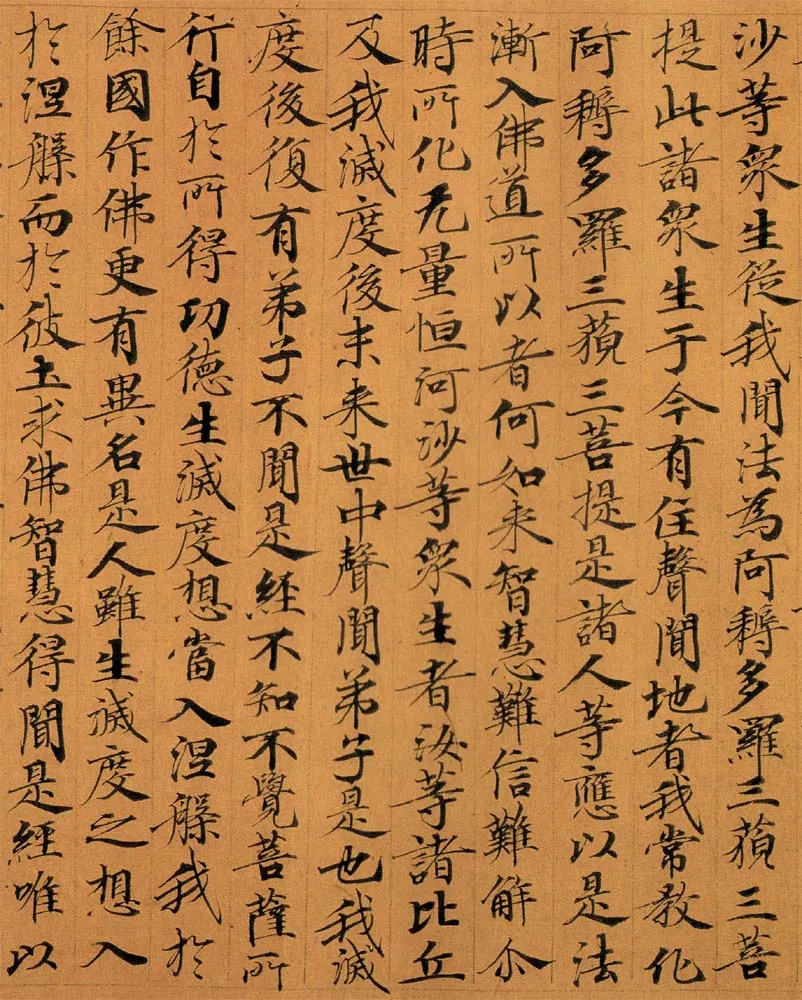 沙等衆生從我聞法為阿耨多羅三藐三菩
提此諸衆生于今有住聲聞地者我常教化
阿耨多羅三藐三菩提是諸人等應以是法
漸入佛道所以者何如来智慧難信難解尒
時所化无量恒河沙等衆生者汝等諸比丘
及我滅度後未来世中聲聞弟子是也我滅
度後復有弟子不聞是經不知不覺菩薩所
行自於所得功德生滅度想當入涅槃我於
餘國作佛更有異名是人雖生滅度之想入
於涅槃而於彼土求佛智慧得聞是經唯以